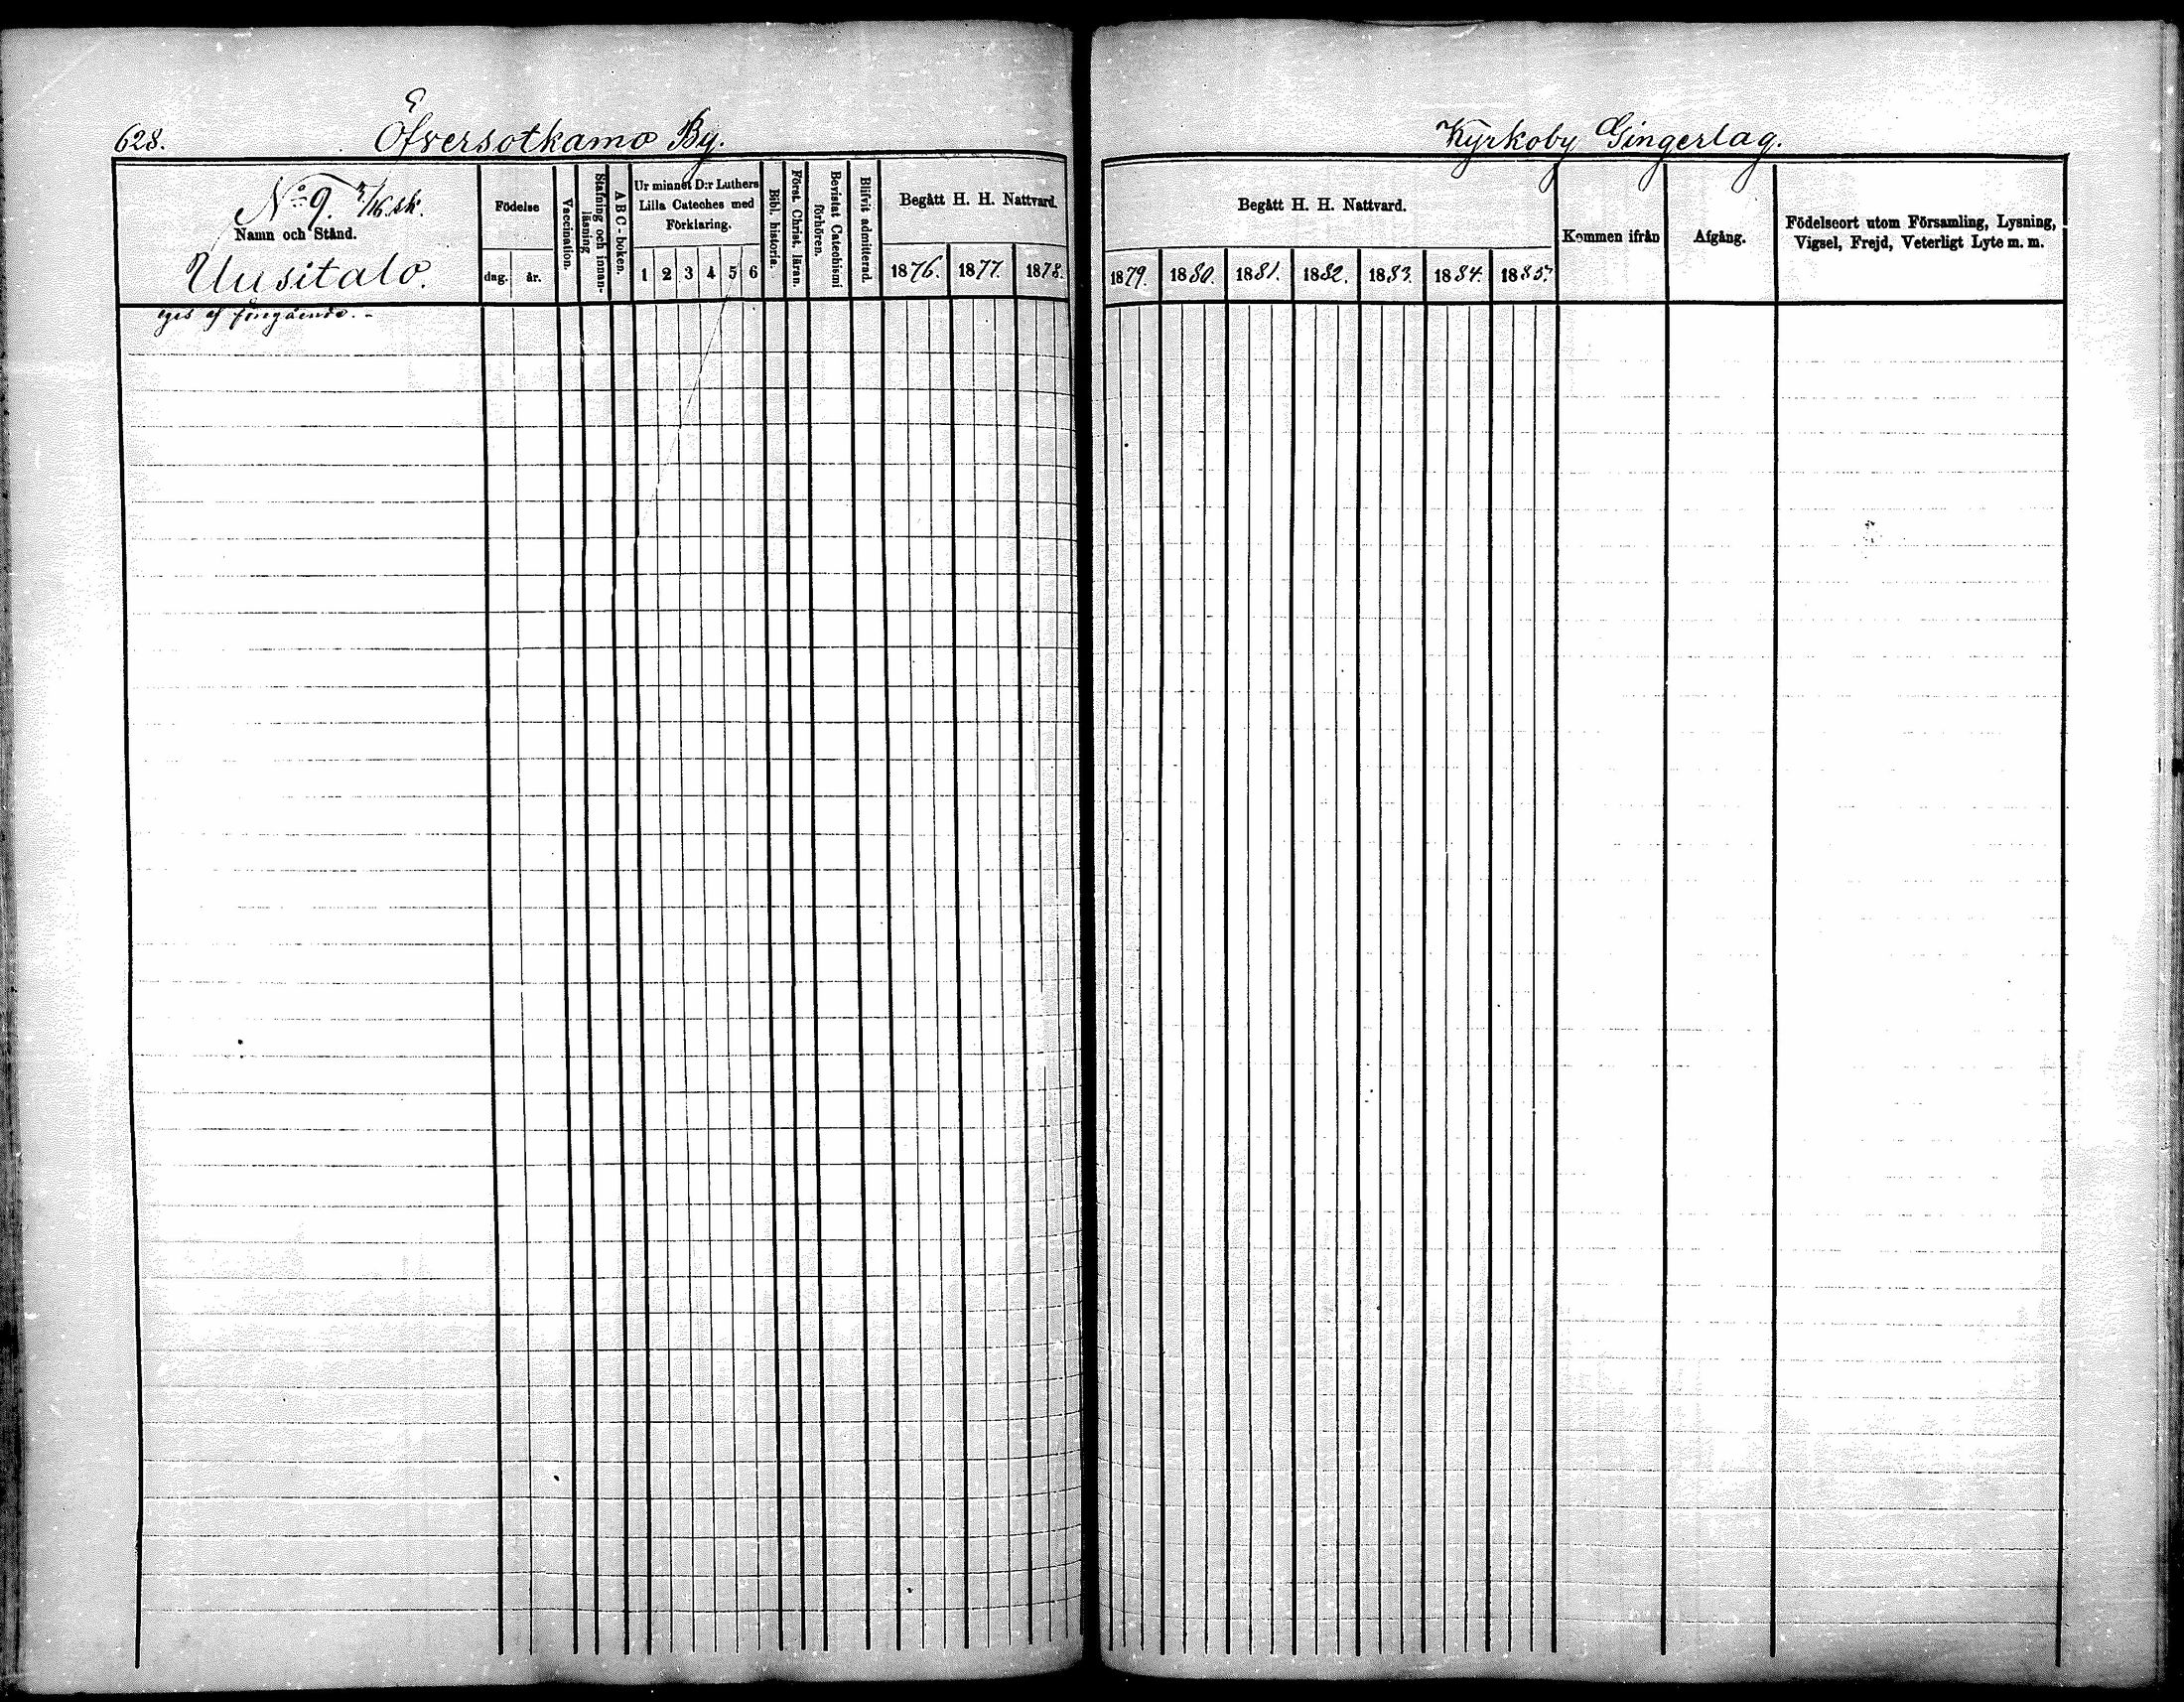 628. Öfversotkamo By. Kyrkoby Gingerlag.
No 9.
Namn och Stånd.
Uusitalo.
Födelse
dag. år.
Vaccination.
Stafning och innan-
läsning
ABC-boken.
Ur minnet D:r Luthers
Lilla Cateches med
Förklaring.
1 2 3 4 5 6
Bibl. historia.
Först. Christ. läran.
Bevistat Catechismi
förhören.
Blifvit admitterad.
Begått H. H. Nattvard.
1876. 1877. 1878.
Begått H. H. Nattvard.
1879. 1880. 1881. 1882. 1883. 1884. 1885.
Kommen ifrån
Afgång.
Födelseort utom Församling, Lysning,
Vigsel, Frejd, Veterligt Lyte m. m.
eges af föregående.